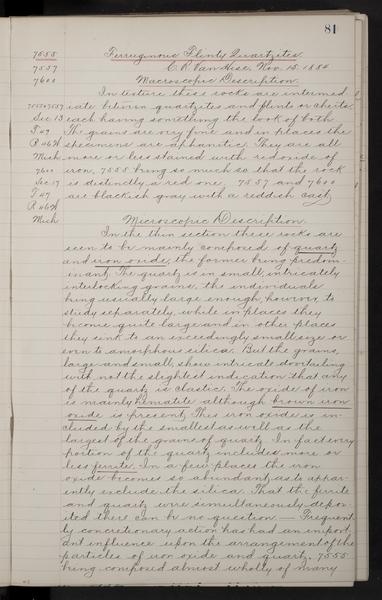 81
7555 Ferruginous Flinty Quartzites.
7557 C. R. Van Hise, Nov. 15, 1884
7600 Macroscopic Description.
In texture these rocks are intermed
7555 & 7557 iate between quartzites and flints or cherts,
Sec 13 each having something the look of both
T 47 The grains are very fine and in places the
R 46 W specimens are aphanitic. They are all
Mich more or less stained with red oxide of
7600 iron, 7555 being so much so that the rock
Sec 17 is distinctly a red one, 7557 and 7600
T 47 are blackish gray with a reddish cast
R 46 W
Mich Microscopic Description.
In the thin section these rocks are
seen to be mainly composed of quartz
and iron oxide, the former being predom-
inant. The quartz is in small, intricately
interlocking grains, the individuals
being usually large enough, however, to
study separately, while in places they
become quite large and in other places
they sink to an exceedingly small size or
even to amorphous silica. But the grains,
large and small, show intricate dovetailing
with not the slightest indication that any
of the quartz is clastic. The oxide of iron
is mainly hematite although brown iron
oxide is present. This iron oxide is in-
cluded by the smallest as well as the
largest of the grains of quartz. In fact every
portion of the quartz includes more or
less ferrite. In a few places the iron
oxide becomes so abundant as to appar-
ently exclude the silica. That the ferrite
and quartz were simultaneously depos
ited there can be no question — Frequent
ly concretionary action has had an import
ant influence upon the arrangement of the
particles of iron oxide and quartz, 7555
being composed almost wholly of many